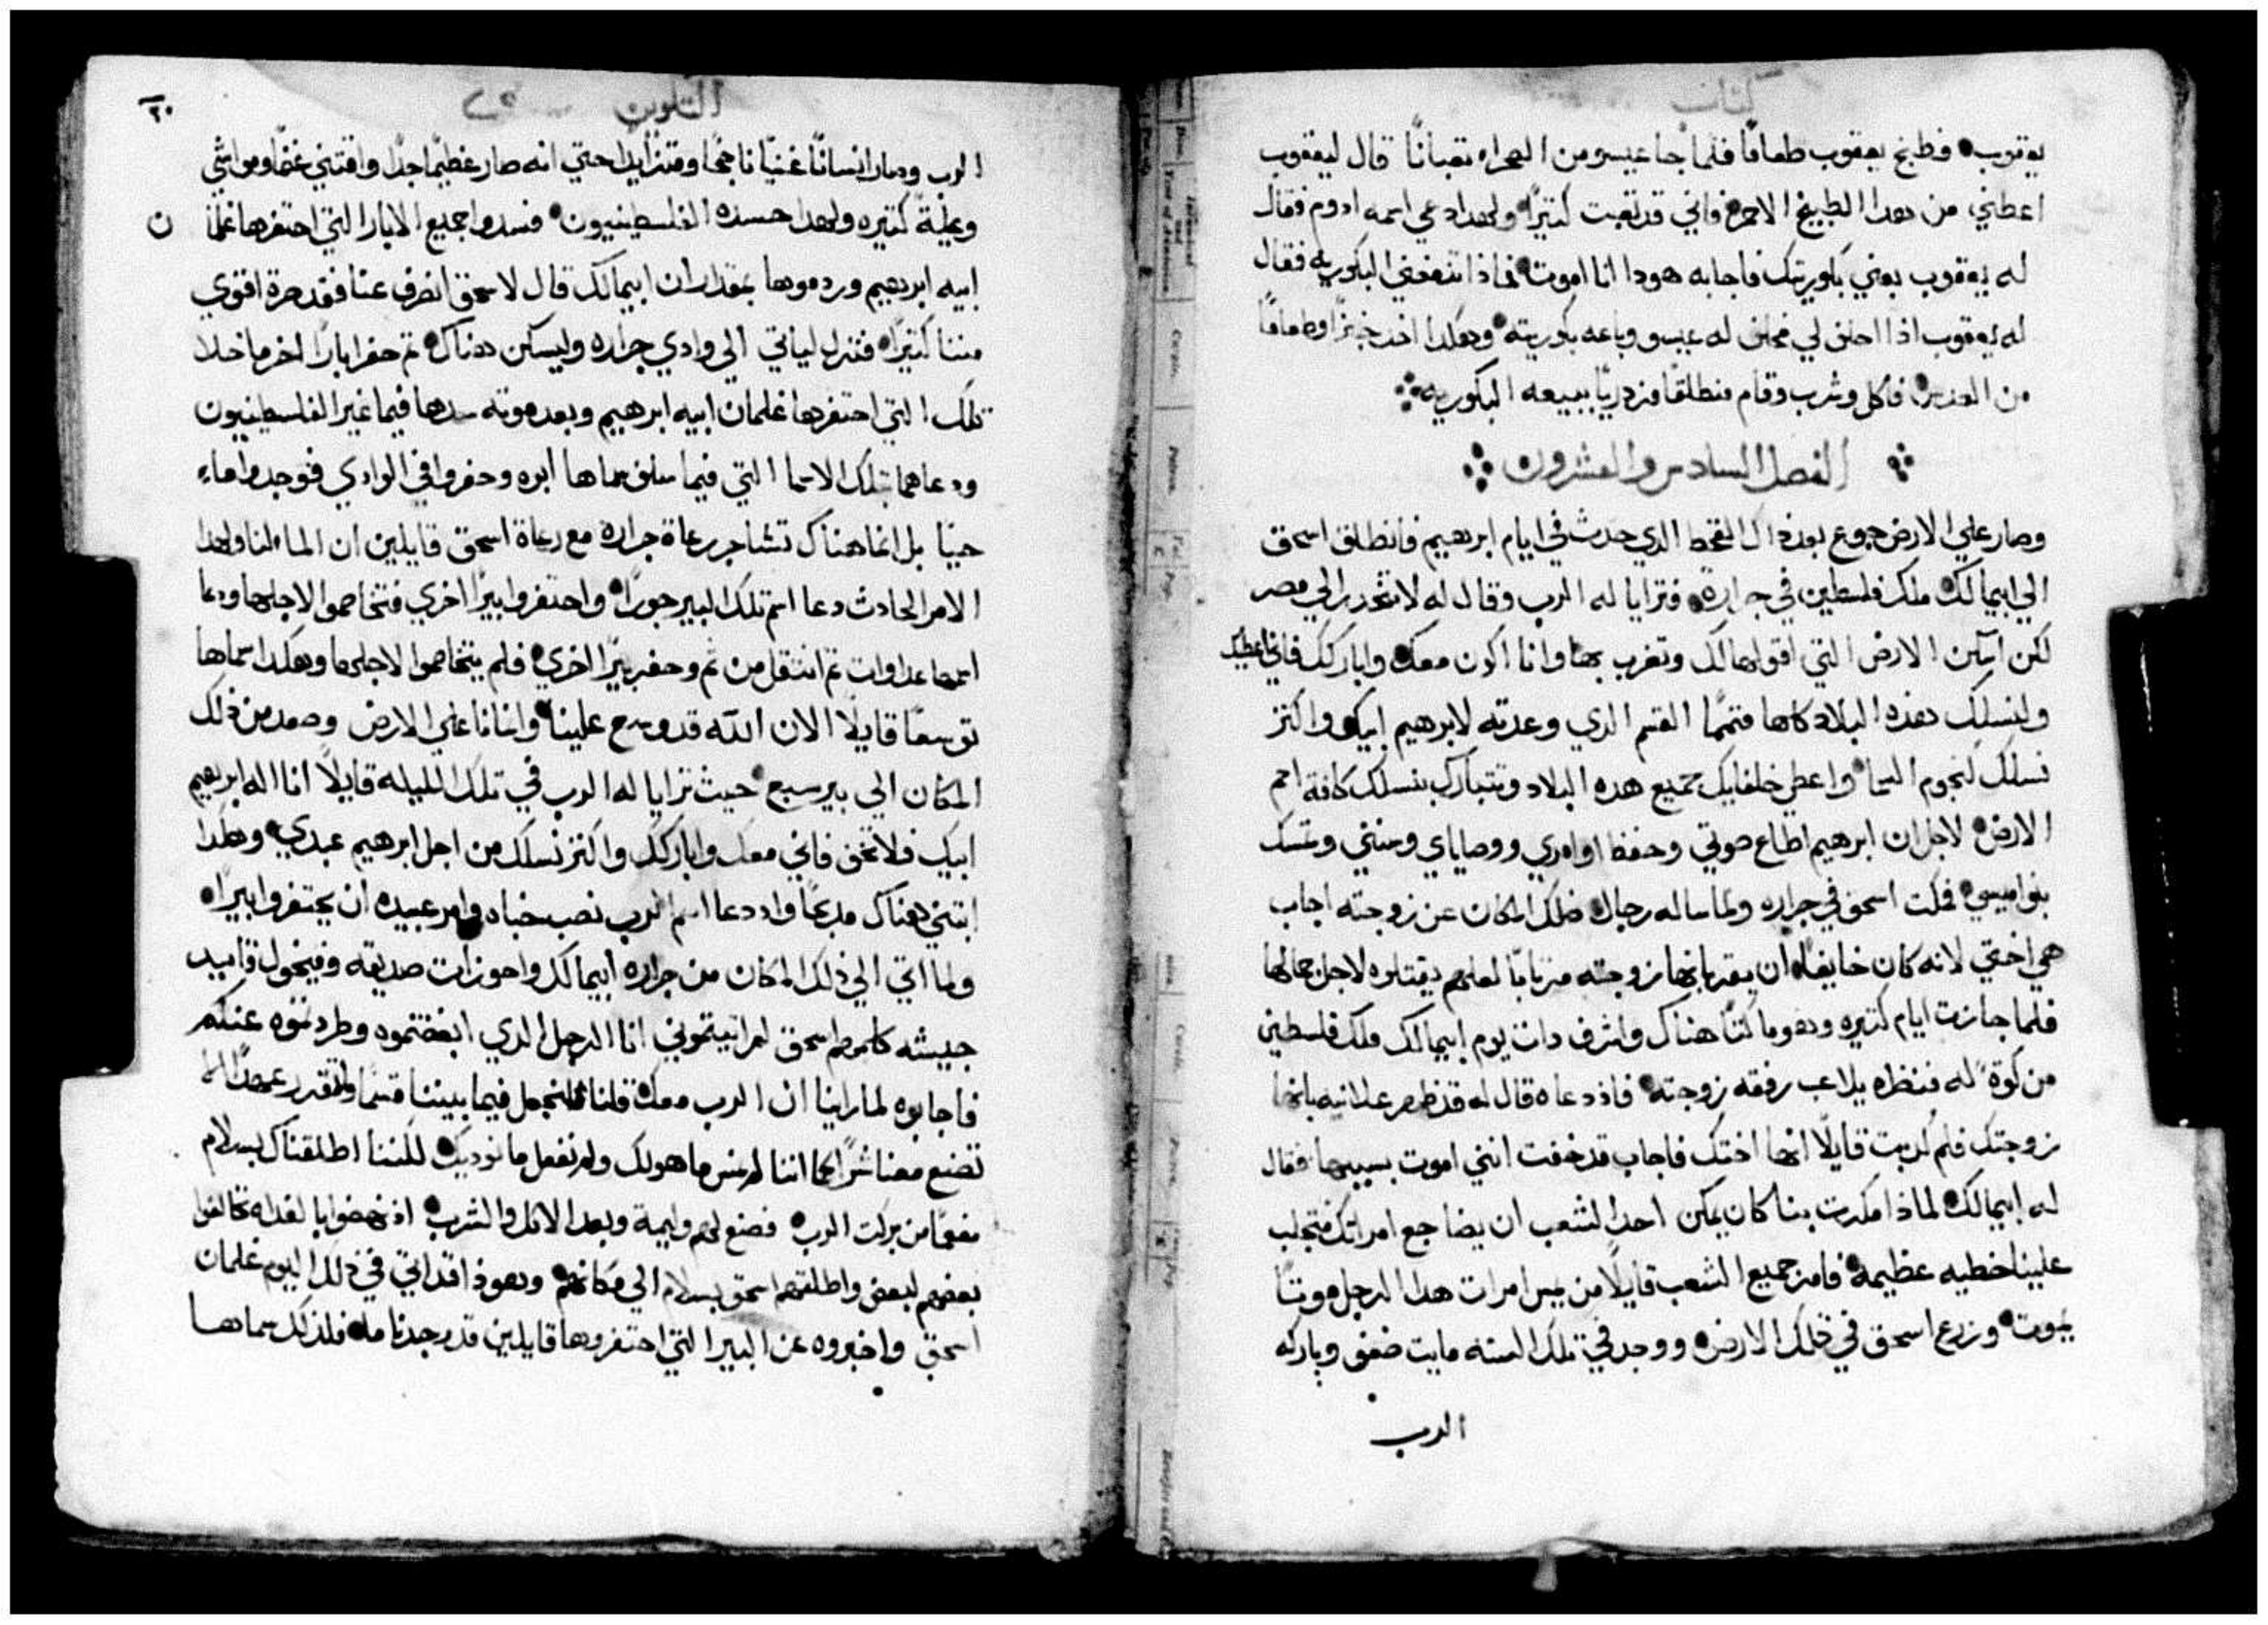 كتاب
يعقوب فطبخ يعقوب طعامًا فلما جا عيسو من الصحراء تعبانًا قال ليعقوب
اعطني من هدا الطبيخ الاحمر فاني قد تعبت كتيرًا ولهدا دعي اسمه ادوم فقال
له يعقوب بعني بكوريتك فاجابه هودا انا اموت فماذا تنفعني البكوريه فقال
له يعقوب اذا احلف لي فحلف له عيسو وباعه بكوريته وهكدا اخد خبزًا وطعامًا
من العدس فاكل وشرب وقام منطلقًا مزدريًا ببيعه البكوريه
الفصل السادس والعشرون
وصار علي الارض جوع بعد ذاك القحط الدي حدث في ايام ابرهيم فانطلق اسحق
الي ابيمالك ملك فلسطين في جراره فترايا له الرب وقال له لا تنحدر الي مصر
لكن اسكن الارض التي اقولها لك وتغرب بها وانا اكون معك واباركك فاني اعطيك
ولنسلك هذه البلاد كلها متممًا القسم الدي وعدته لابرهيم ابيك واكتر
نسلك كنجوم السما واعطي خلفايك جميع هده البلاد وتتبارك بنسلك كافة امم
الارض لاجل ان ابرهيم اطاع صوتي وحفظ اوامري ووصاياي وسنني وتمسك
بنواميسي فمكت اسحق في جراره ولما ساله رجال ذلك المكان عن زوجته اجاب
هي اختي لانه كان خايفًا ان يقر بانها زوجته مرتابًا لعلهم يقتلوه لاجل جمالها
فلما جازت ايام كتيره وهو ماكتًا هناك واشرف دات يوم ابيمالك ملك فلسطين
من كوة له فنظره يلاعب رفقه زوجته فاذ دعاه قال له قد ظهر علانيه بانها
زوجتك فلم كدبت قايلًا انها اختك فاجاب قد خفت انني اموت بسببها فقال
له ابيمالك لماذا مكرت بنا كان يمكن احد الشعب ان يضاجع امراتك فتجلب
علينا خطيه عظيمة فامر جميع الشعب قايلًا من يمس امرات هدا الرجل موتًا
يموت وزرع اسحق في تلك الارض ووجد في تلك السنه مايت ضعف وباركه
الرب
التكوين
٢٠
الرب وصار انسانًا غنيًا ناجحًا ومتزايدًا حتي انه صار عظيمًا جدًا واقتني غنمًا ومواشي
وعيلةً كتيره ولهدا حسده الفلسطينيون فسدوا جميع الابار التي احتفرها غلمان
ابيه ابرهيم وردموها بمقدار ان ابيمالك قال لاسحق انصرف عنا فقد صرة اقوي
مننا كتيرًا فنزل لياتي الي وادي جراره وليسكن هناك تم حفر ابارًا اخر ما خلا
تلك التي احتفرها غلمان ابيه ابرهيم وبعد موته سدها فيما غبر الفلسطينيون
ودعاهما بتلك الاسما التي فيما سلف سماها ابوه وحفروا في الوادي فوجدوا ماء
حيًا بل انما هناك تشاجر رعاة جراره مع رعاة اسحق قايلين ان الما لنا ولهدا
الامر الحادث دعا اسم تلك البير جورًا واحتفروا بيرًا اخري فتخاصموا لاجلها ودعا
اسمها عداوات تم انتقل من ثم وحفر بيرًا اخري فلم يتخاصموا لاجلها وهكدا سماها
توسعًا قايلًا الان الله قد وسع علينا وانمانا علي الارض وصعد من ذلك
المكان الي بير سبع حيث ترايا له الرب في تلك الليله قايلًا انا اله ابرهيم
ابيك فلا تخف فاني معك واباركك واكتر نسلك من اجل ابرهيم عبدي وهكدا
ابتني هناك مدبحًا واد دعا اسم الرب نصب خباه وامر عبيده ان يحتفروا بيرًا
ولما اتي الي ذلك المكان من جراره ابيمالك واحوزات صديقه وفيخول قايد
جيشه كلمهم اسحق لم اتيتموني انا الرجل الدي ابغضتموه وطردتموه عنكم
فاجابوه لما راينا ان الرب معك قلنا فلنجعل فيما بيننا قسمًا ولنقرر عهدًا الا
تصنع معنا شرًا كما اننا لم نمس ما هو لك ولم نفعل ما نوديك لكننا اطلقناك بسلام
مفعمًا من بركت الرب فصنع لهم وليمة وبعد الاكل والشرب اذ نهضوا بالغداه تحالفوا
بعضهم لبعض واطلقهم اسحق بسلام الي مكانهم وهوذا قد اتي في ذلك اليوم غلمان
اسحق واخبروه عن البير التي احتفروها قايلين قد وجدنا ماء فلذلك سماها